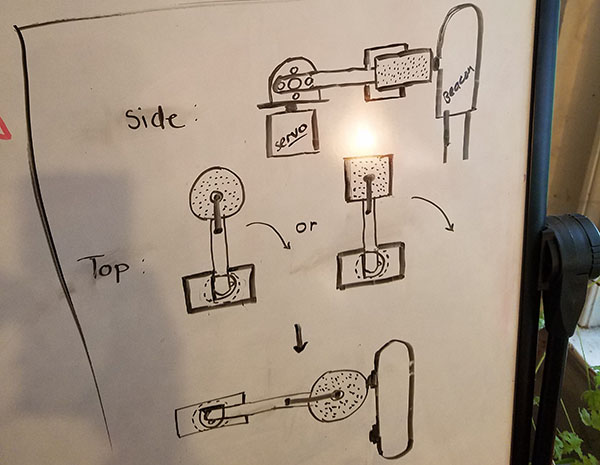 Side:
servo
Beacon
Top:
or